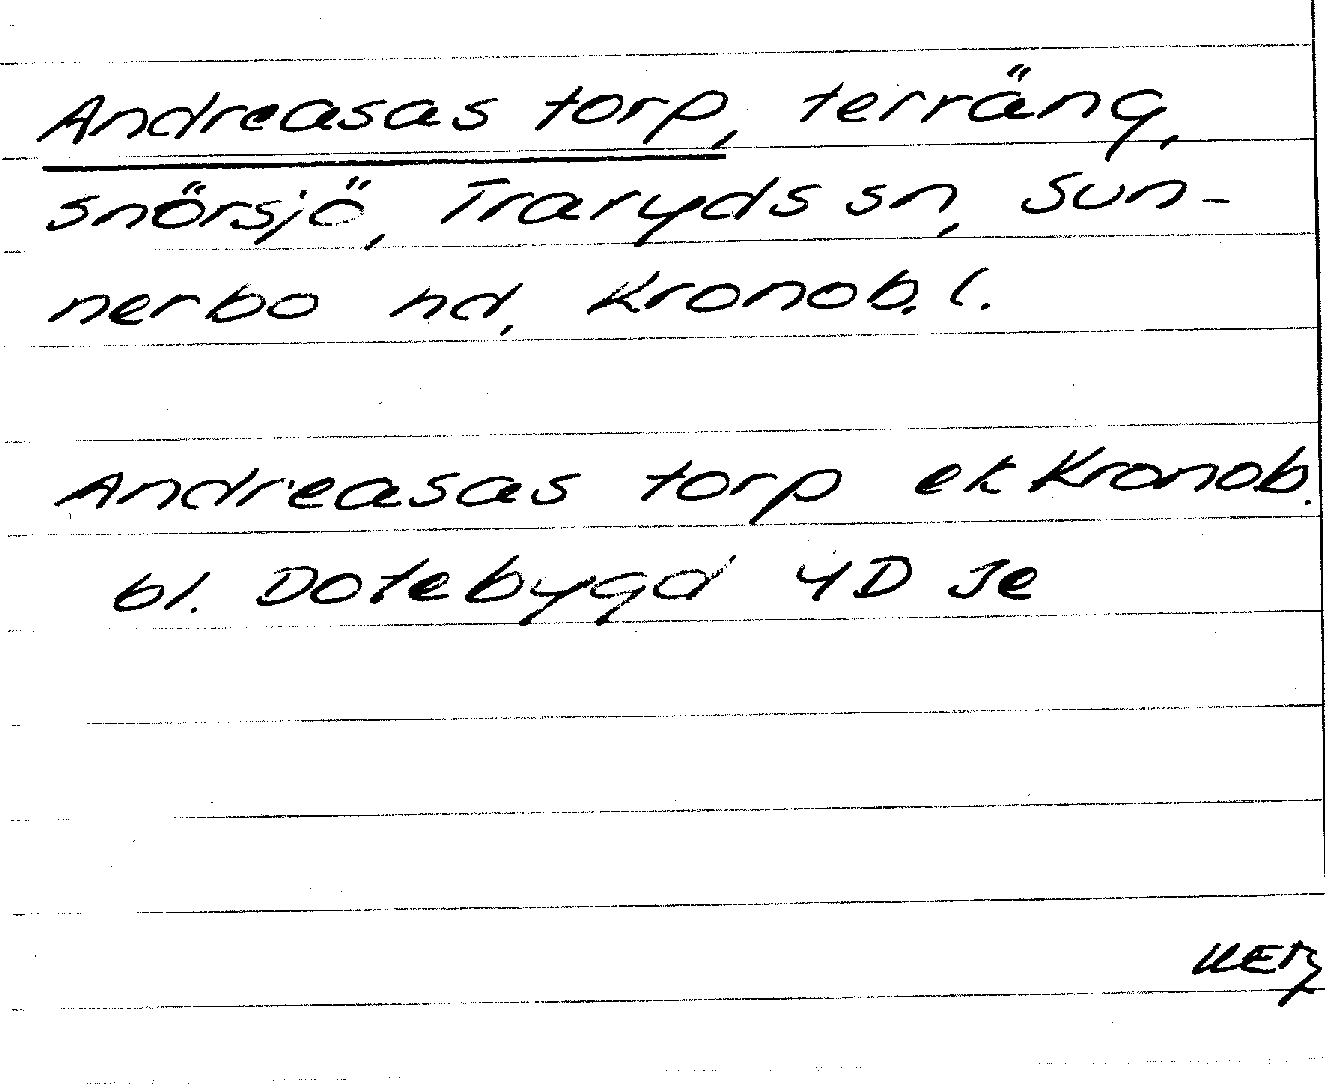 Andreasas torp, terräng,
snörsjö, Traryds sn, Sun-
nerbo hd, Kronob. l.
Andreasas torp ek Kronob.
bl. Dotebygd 4D Je